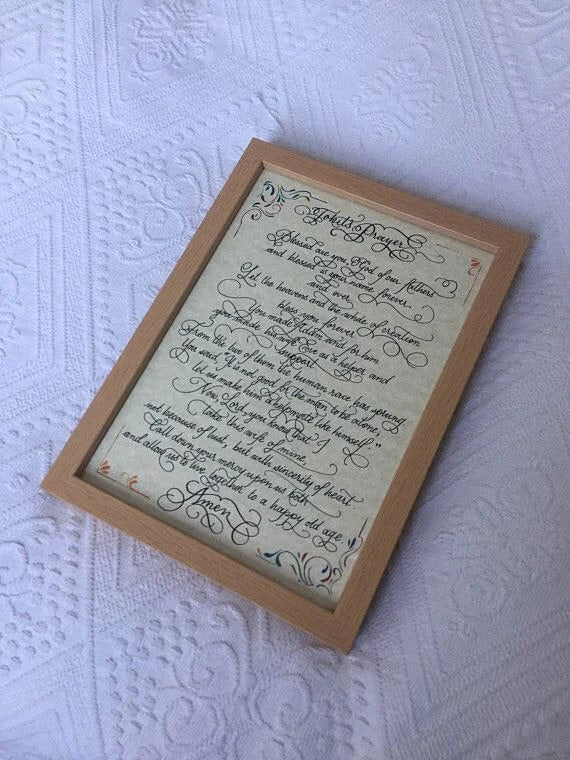 Tobit's Prayer
Blessed are you, God of our fathers
and blessed is your name forever
and ever.
Let the heavens and the whole of creation
bless you forever.
You made Adam and for him
you made his wife Eve as a helper and
support.
From the two of them the human race has sprung.
You said, "It is not good for the man to be alone,
let us make him a helpmate like himself."
Now, Lord, you know that I
take this wife of mine
not because of lust, but with sincerity of heart.
Call down your mercy upon us both
and allow us to live together to a happy old age.
Amen